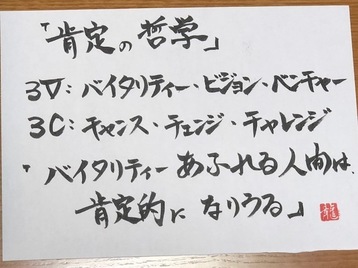 「肯定の哲学」
3V:バイタリティー・ビジョン・ベンチャー
3C:チャンス・チェンジ・チャレンジ
「バイタリティーあふれる人間は、
肯定的になりうる」